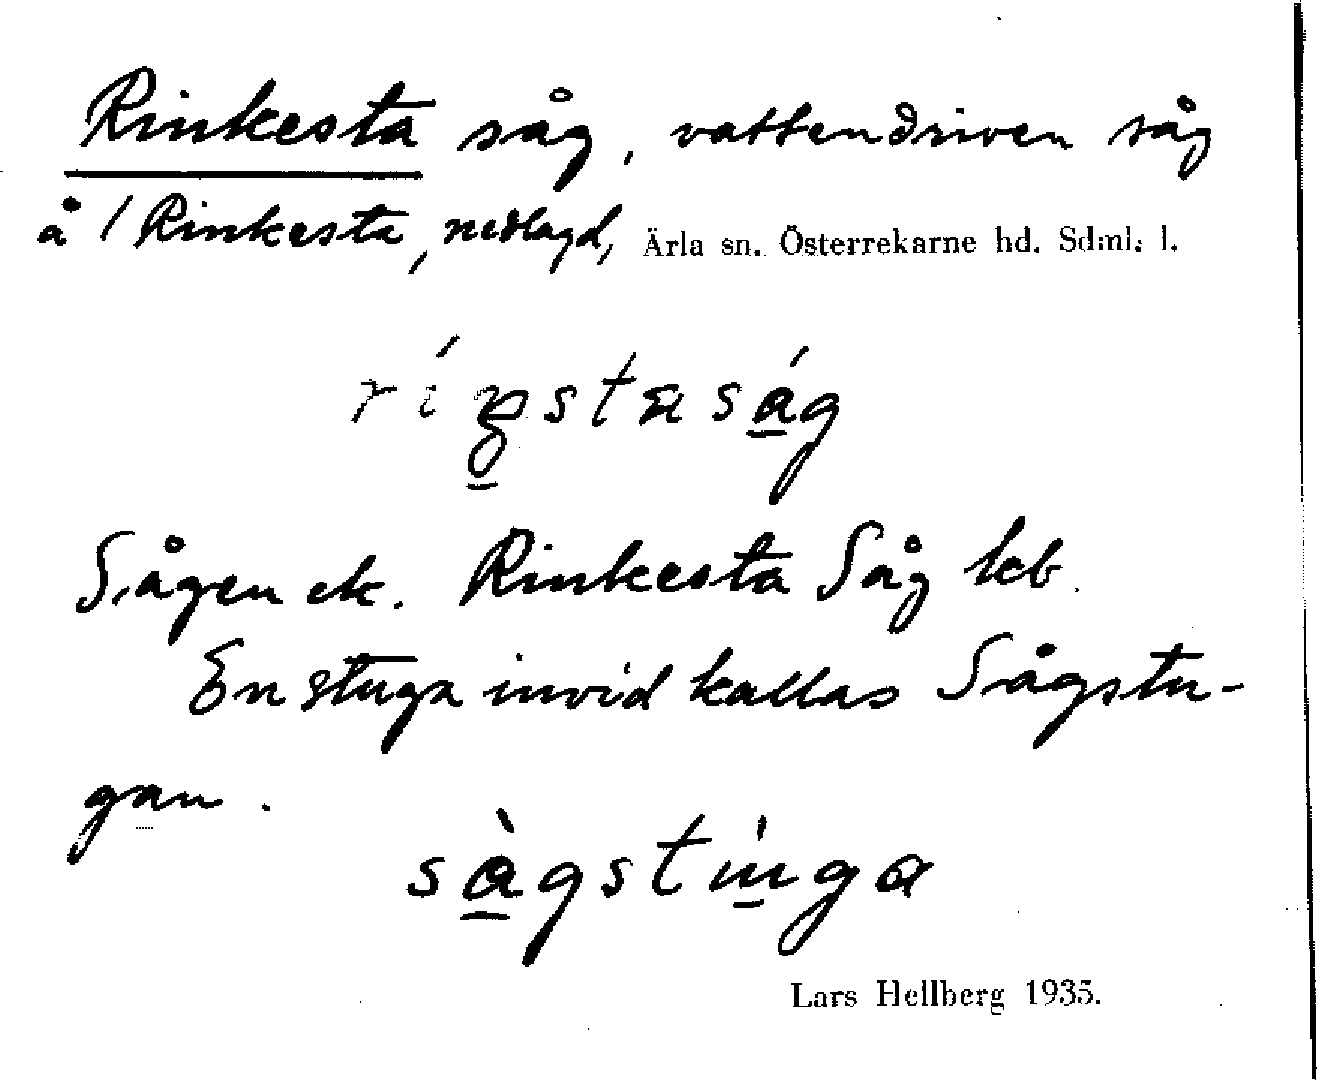 Rinkesta såg, vattendriven såg
å / Rinkesta, nedlagd, Ärla sn. Österrekarne hd. Sdml. l.
Sågen ek. Rinkesta Såg kb.
En stuga invid kallas Sågstu-
gan.
Lars Hellberg 1935.